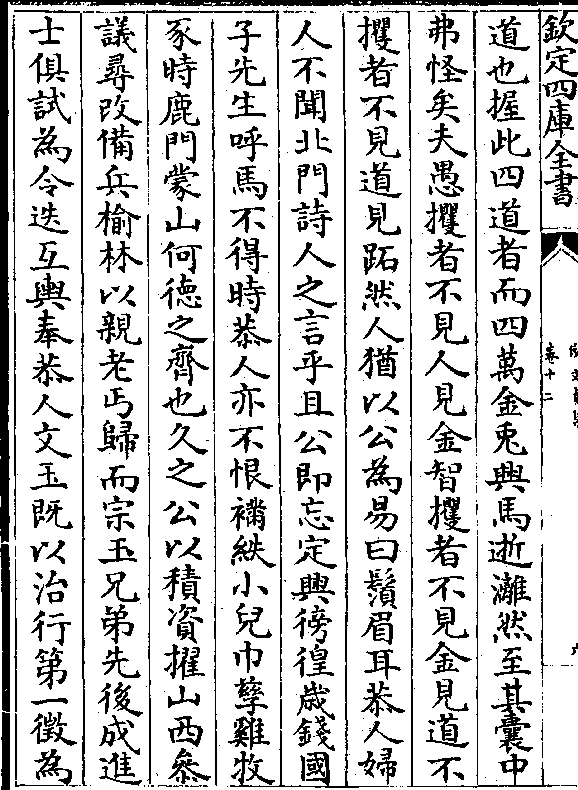 欽定四庫全書
卷十二
道也握此四道者而四萬金兎興馬逝灕然至其囊中
弗怪矣夫愚攫者不見人見金智攫者不見金見道不
攫者不見道見跖然人猶以公為易曰鬚眉耳恭人婦
人不聞北門詩人之言乎且公即忘定興徬徨歲錢國
子先生呼馬不得時恭人亦不恨襽紩小兒巾孽雞牧
豕時鹿門蒙山何德之齊也久之公以積資擢山西叅
議尋改備兵榆林以親老丐歸而宗玉兄弟先後成進
士俱試為令迭互輿奉恭人文玉既以治行第一徵為